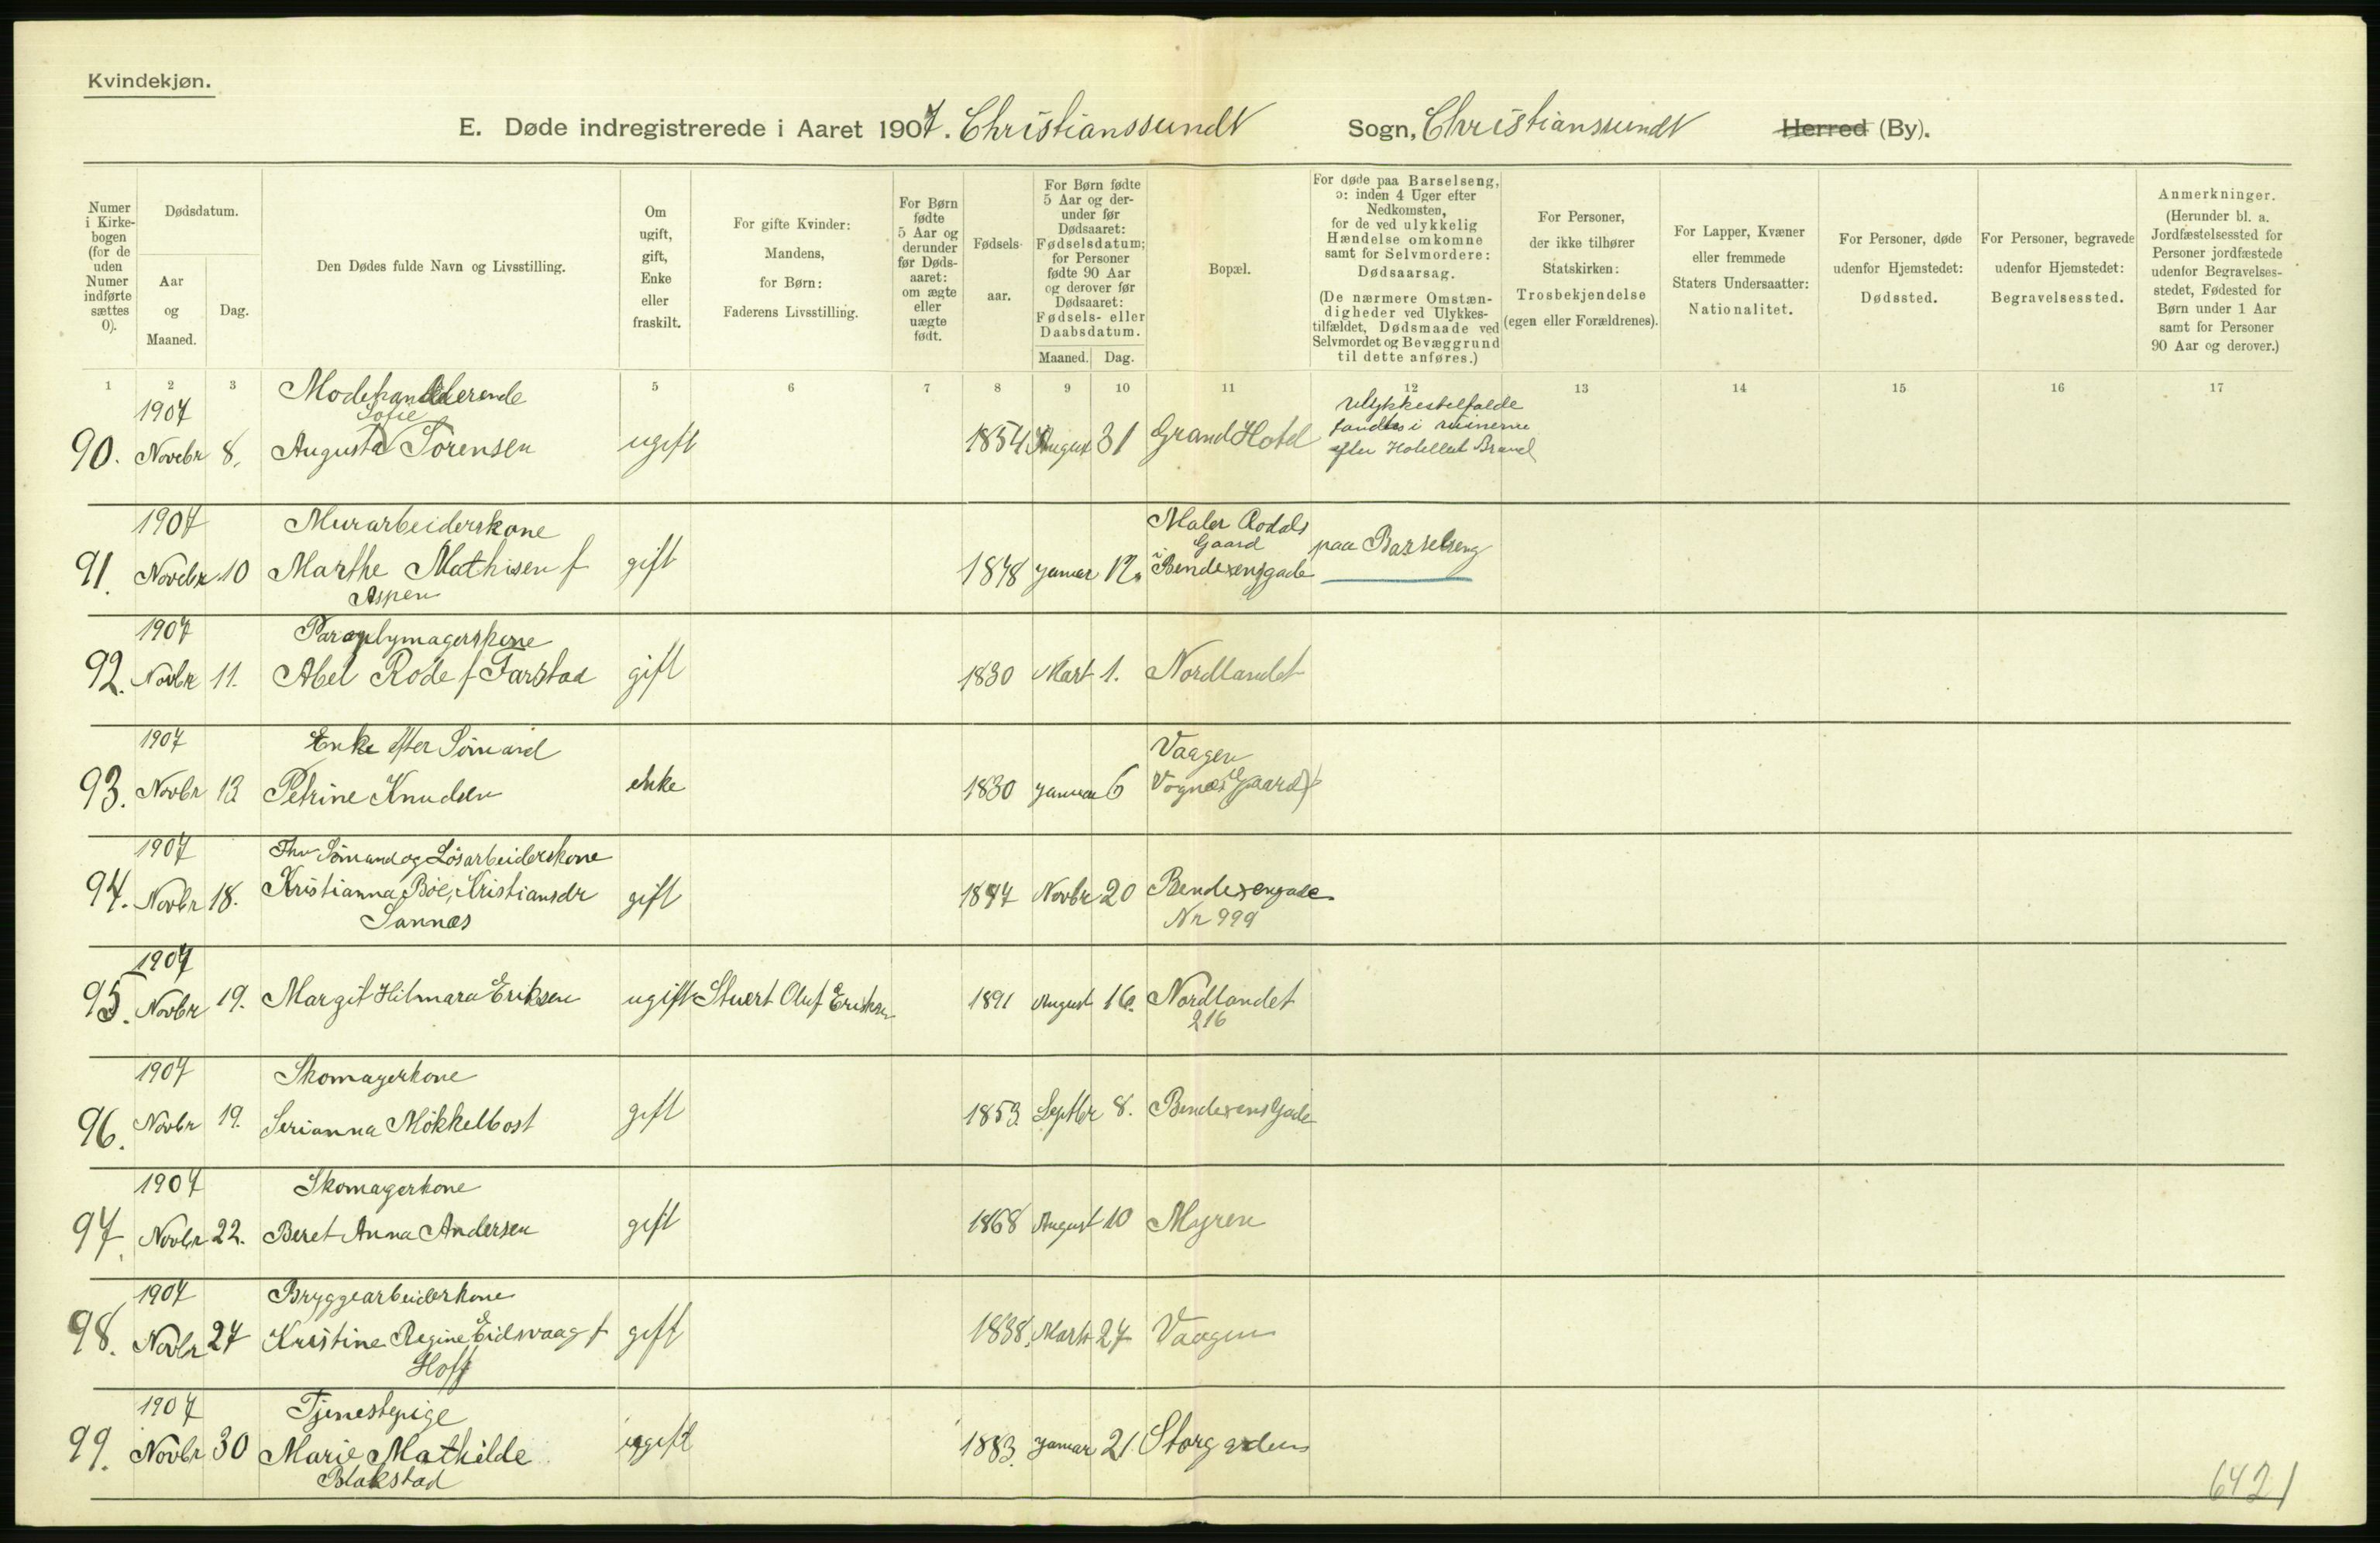 Kvindekjøn.
E. Døde indregistrerede i Aaret 1907. Christianssundt Sogn, Christianssundt Herred (By).
Numer i Kirke-bogen (for de uden Numer indførte sættes 0).
Dødsdatum.
Aar og Maaned.
Dag.
Den Dødes fulde Navn og Livsstilling.
Om ugift, gift, Enke eller fraskilt.
For gifte Kvinder: Mandens, for Børn: Faderens Livsstilling.
For Børn fødte 5 Aar og derunder før Døds-aaret: om ægte eller uægte født.
Fødsels-aar.
For Børn fødte 5 Aar og der-under før Dødsaaret: Fødselsdatum; for Personer fødte 90 Aar og derover før Dødsaaret: Fødsels- eller Daabsdatum.
Maaned. Dag.
Bopæl.
For døde paa Barselseng, ɔ: inden 4 Uger efter Nedkomsten, for de ved ulykkelig Hændelse omkomne samt for Selvmordere: Dødsaarsag.
(De nærmere Omstæn-digheder ved Ulykkes-tilfældet, Dødsmaade ved Selvmordet og Bevæggrund til dette anføres.)
For Personer, der ikke tilhører Statskirken: Trosbekjendelse (egen eller Forældrenes).
For Lapper, Kvæner eller fremmede Staters Undersaatter: Nationalitet.
For Personer, døde udenfor Hjemstedet: Dødssted.
For Personer, begravede udenfor Hjemstedet: Begravelsessted.
Anmerkninger.
(Herunder bl. a. Jordfæstelsessted for Personer jordfæstede udenfor Begravelses-stedet, Fødested for Børn under 1 Aar samt for Personer 90 Aar og derover.)
1 2 3 5 6 7 8 9 10 11 12 13 14 15 16 17
1907 Modehandlerende
Sofie
90. Novebr 8. Augusta Sørensen ugift 1854 August 31 Grand Hotel
Ulykkestelfælde
fandtes i ruinerne
efter Hotellet Brand
1907 Murarbeiderskone
91. Novebr 10 Marthe Mathisen f gift 1878 Januar 12.
Aspen
Maler Rodals
Gaard
i Bendexensgade
paa Barselseng
1907 Paraplymagerskone
92. Novbr 11. Abel Rode f Farstad gift 1830 Mart 1. Nordlandet
1907 Enke efter Sømand
93. Novbr 13 Petrine Knudsen enke 1830 Januar 6
Vaagen
Vognæs Gaard
1907 Fhv Sømand og Løsarbeiderskone
94. Novbr 18. Kristianna Bøe, Kristiansdr gift 1847 Novbr 20 Bendexengade
Sannæs Nr 999
1907
95. Novbr 19. Margit Hilmara Eriksen ugift Stuert Oluf Eriksen 1891 August 16. Nordlandet
216
1907 Skomagerkone
96. Novbr 19. Serianna Mökkelbost gift 1853. Septbr 8. Bendexens Gade
1907 Skomagerkone
97. Novbr 22. Beret Anna Andersen gift 1868 August 10 Myren
1907 Bryggearbeiderkone
98. Novbr 27 Kristine Regine Eidsvaag f gift 1838. Marts 27 Vaagen
Hoff
1907 Tjenestepige
99. Novbr 30 Marie Mathilde ugift 1883. Januar 21. Storgaden
Blakstad
6421